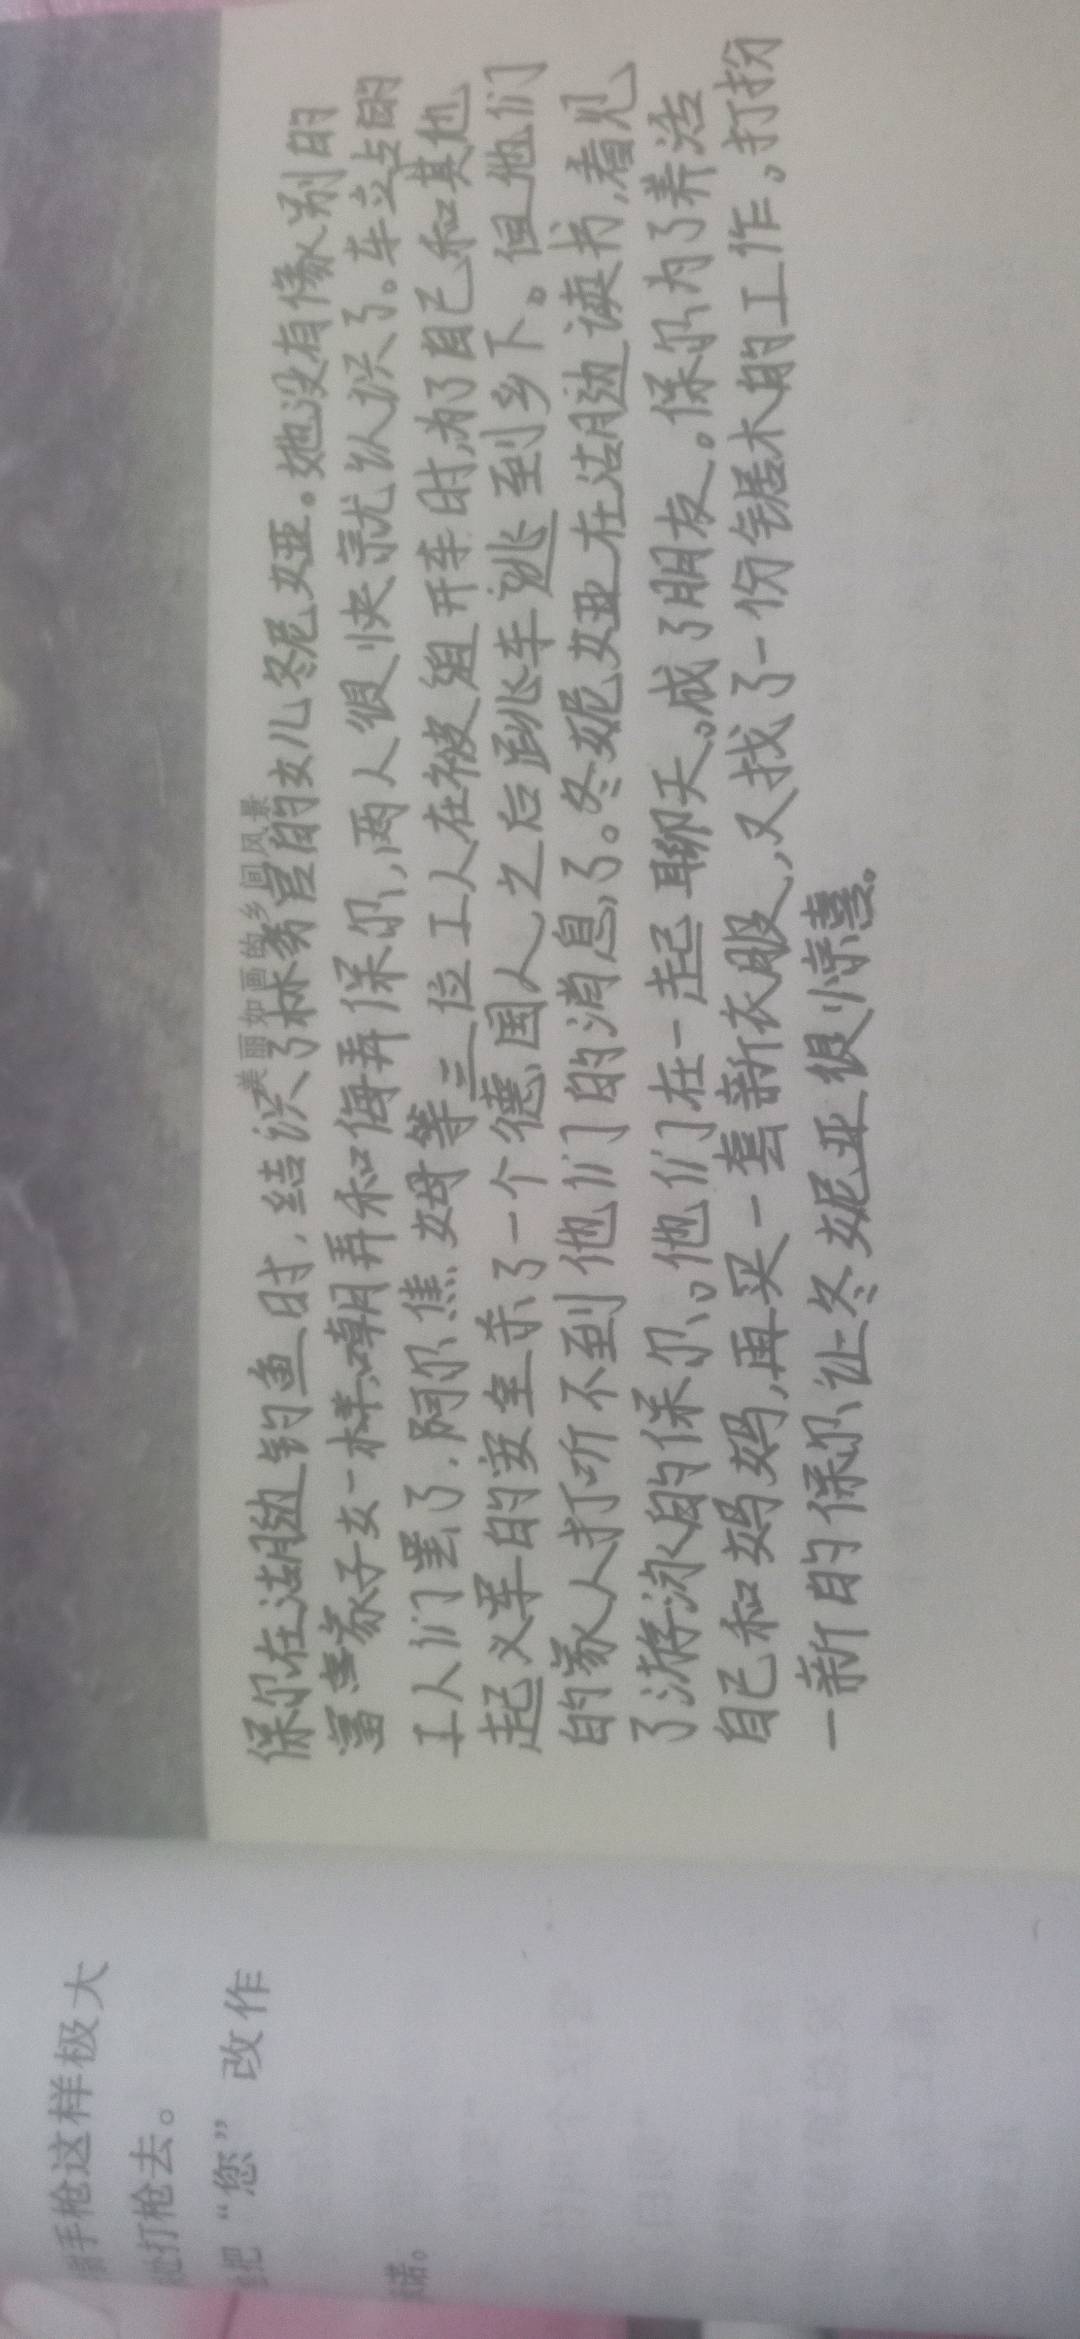 美丽如画的乡间风景
保尔在湖边钓鱼时,结识了林务官的女儿冬妮娅。她没有像别的
富家子女一样嘲弄和侮弄保尔,两人很快就认识了。车站的
工人们罢了,阿尔焦姆等三位工人在被迫开车时,为了自己和其他
起义军的安全杀了一个德国人之后跳车逃到乡下。但他们
的家人打听不到他们的消息了。冬妮娅在湖边读书,看见
了游泳的保尔。他们在一起聊天。成了朋友。保尔为了养活
自己和妈妈,再买一套新衣服,又找了一份锯木的工作。打扮
一新的保尔让冬妮亚很惊喜。
手枪这样极大
打枪去。
把“您”改作
诺。